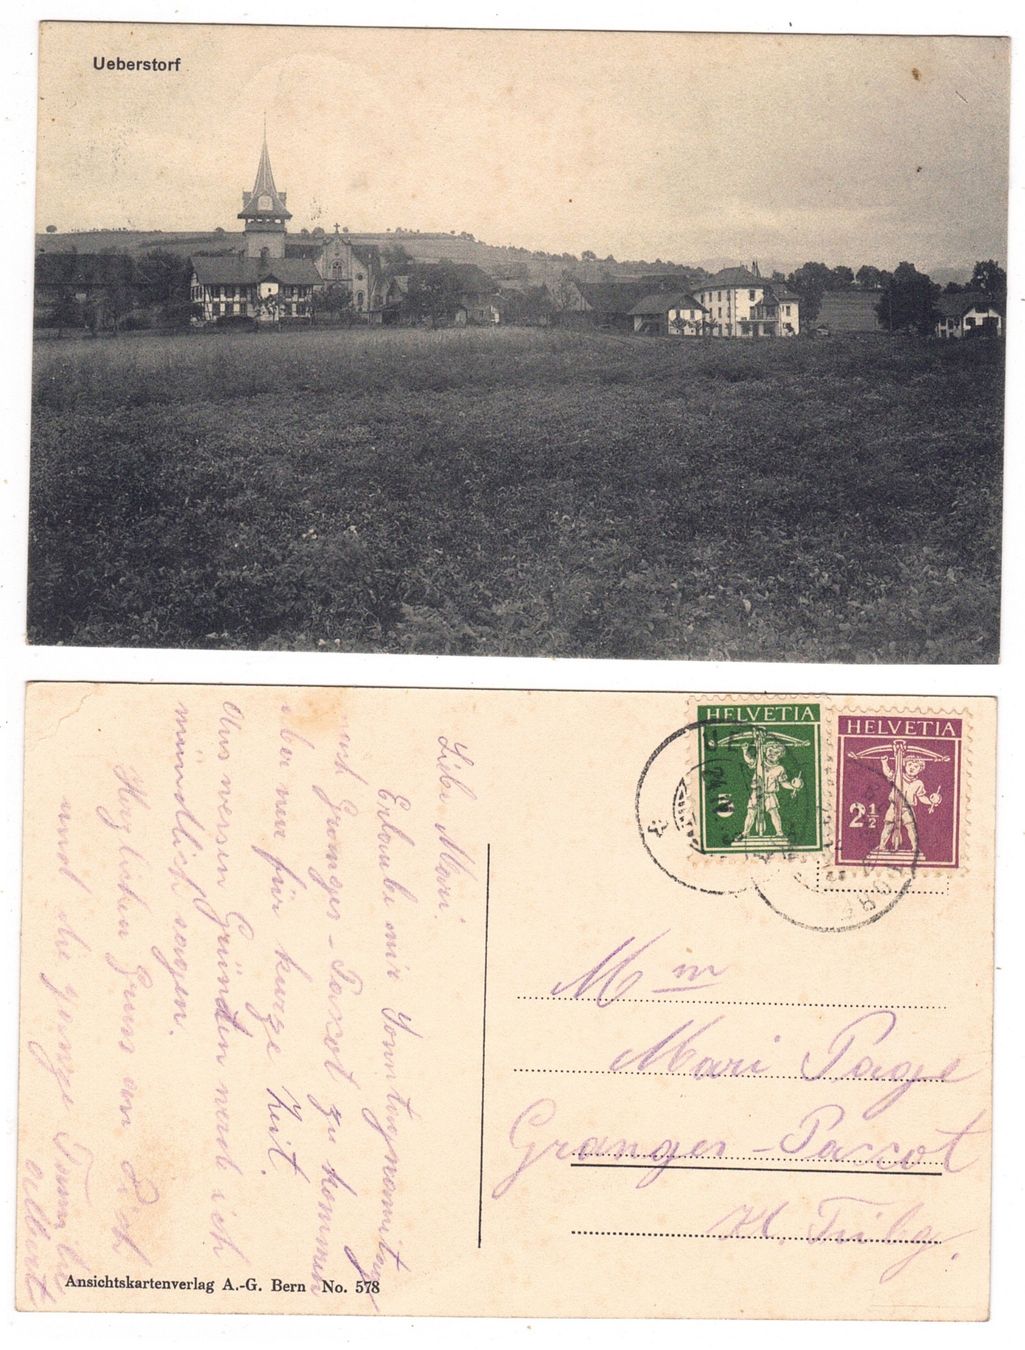 Ueberstorf
HELVETIA
5
HELVETIA
2½
Libe Mari.
Erlaube mir Sonntagnamitag
nach Granges-Paxot zu kommen
aber nur für kurze Zeit.
Aus wessen Gründen werde ich
mündlich sagen.
Herzlichen Gruss an Dich
und die ganze Familie
Albert
Mm
Mari Page
Granges-Paxot
Kt. Fribg.
Ansichtskartenverlag A.-G. Bern No. 578